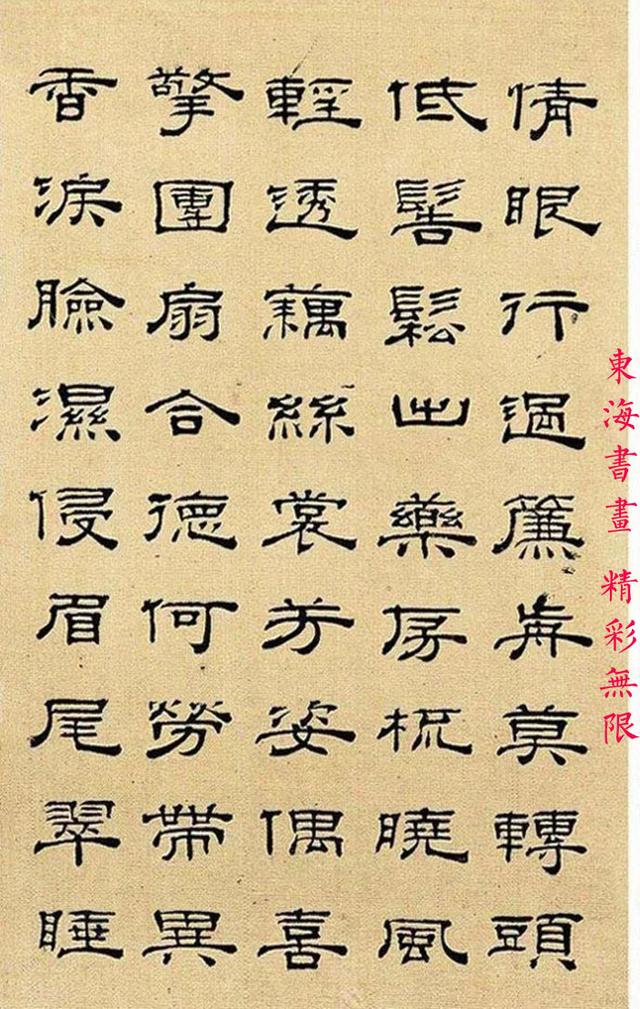 情眼行過簾歬莫轉頭
低髻鬆出藥房梳曉風
輕透藕絲裳芳姿偶喜
擎團扇合德何勞帶異
香淚臉濕侵眉尾翠睡
東海書畫 精彩無限